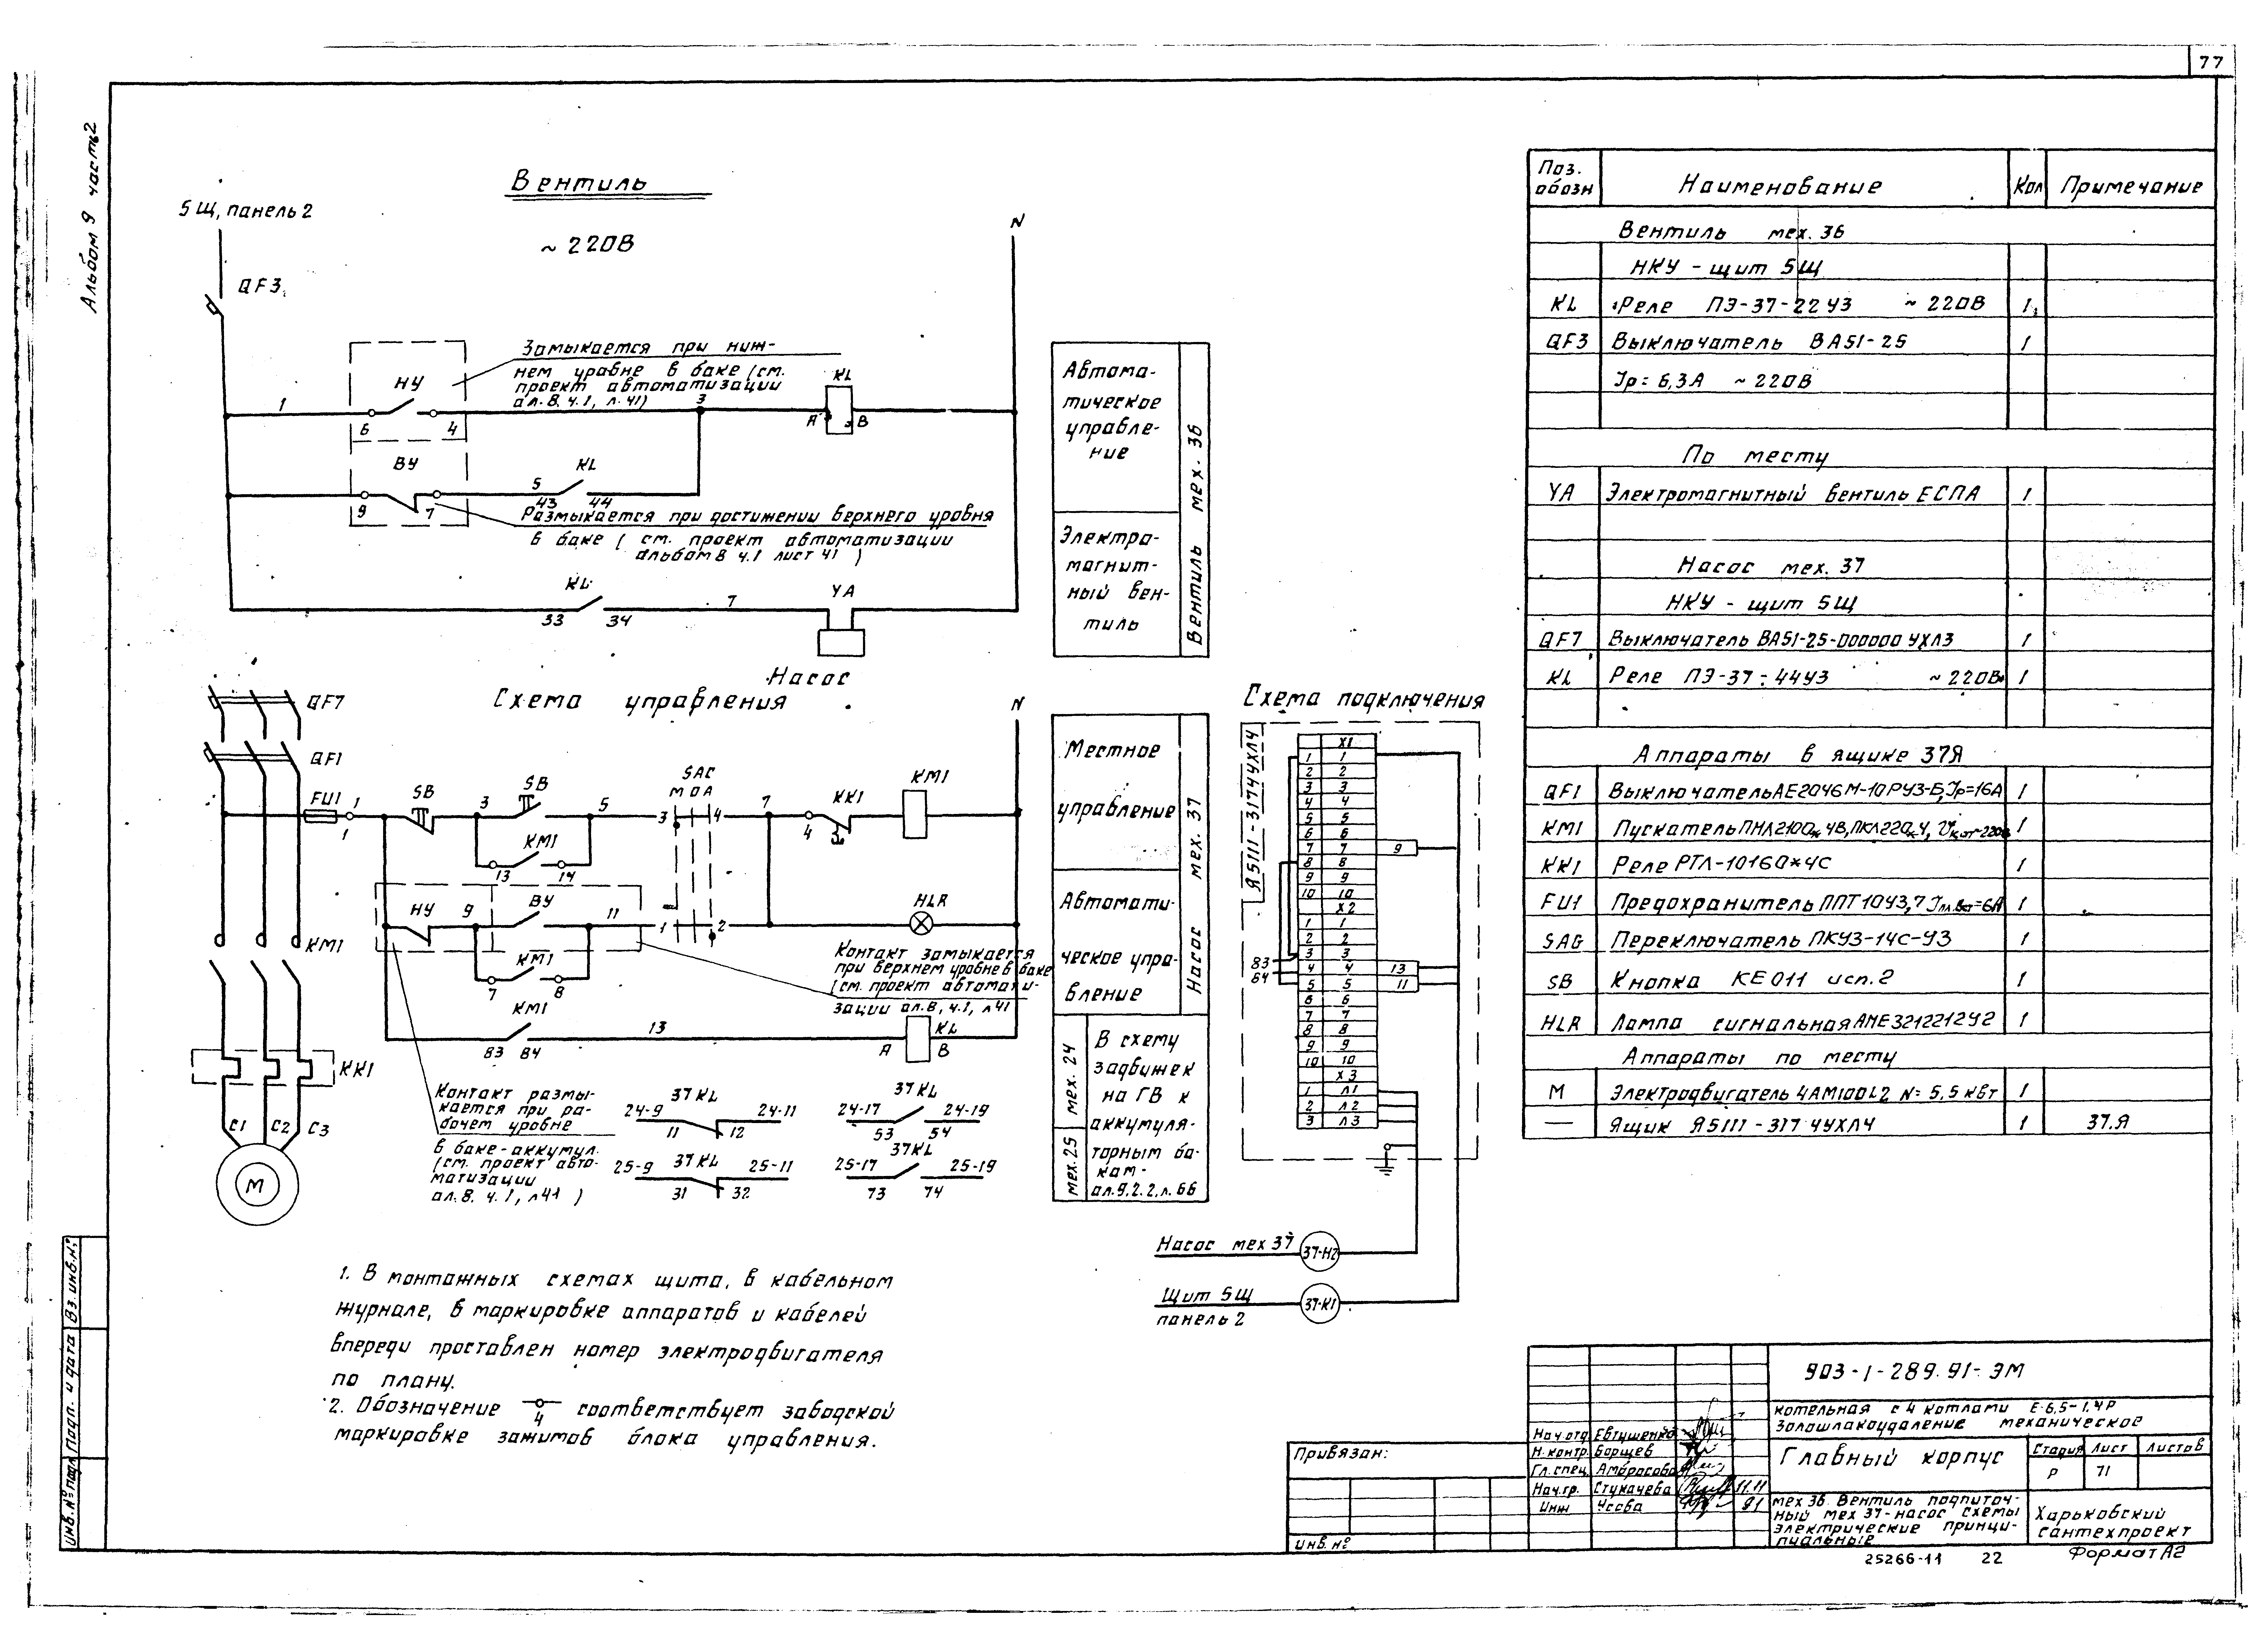 77
Альбом 9 часть 2
Вентиль
5Щ, панель 2
~ 220В
N
QF3
Замыкается при ниж-
нем уровне в баке (см.
проект автоматизации
ал. 8, ч.1, л. 41)
НУ
KL
1
3
6
4
A
B
ВУ
KL
5
43
44
9
7
Размыкается при достижении верхнего уровня
в баке ( см. проект автоматизации
альбом 8 ч.1 лист 41 )
KL
YA
7
33
34
Автома-
тическое
управле-
ние
Электро-
магнит-
ный вен-
тиль
Вентиль мех. 36
Насос
Схема управления
QF7
QF1
N
FU1
1
1
SB
3
SB
5
SAC
М О А
3
4
7
KK1
4
KM1
KM1
13
14
НУ
9
ВУ
11
1
2
HLR
KM1
7
8
KM1
Контакт замыкается
при верхнем уровне в баке
(см. проект автомати-
зации ал. 8, ч.1, л 41
KM1
83
84
13
A
KL
B
KK1
C1
C2
C3
M
Контакт размы-
кается при ра-
бочем уровне
в баке-аккумул.
(см. проект авто-
матизации
ал. 8. ч. 1, л 41 )
37 KL
24-9
24-11
11
12
37 KL
24-17
24-19
53
54
37 KL
25-9
25-11
31
32
37KL
25-17
25-19
73
74
Местное
управление
Автомати-
ческое упра-
вление
Насос мех. 37
мех. 24
мех.25
В схему
задвижек
на ГВ к
аккумуля-
торным ба-
кам-
ал. 9. 2. 2, л. 66
Схема подключения
Я5111-3174УХЛ4
X1
1 1
2 2
3 3
4 4
5 5
6 6
7 7 9
8 8
9 9
10 10
X2
1 1
2 2
83 3 3
84 4 4 13
5 5 11
6 6
7 7
8 8
9 9
10 10
X3
1 Л1
2 Л2
3 Л3
Насос мех 37 37-Н2
Щит 5Щ 37-К1
панель 2
1. В монтажных схемах щита, в кабельном
журнале, в маркировке аппаратов и кабелей
впереди проставлен номер электродвигателя
по плану.
2. Обозначение 4 соответствует заводской
маркировке зажимов блока управления.
Поз. обозн Наименование Кол Примечание
Вентиль мех. 36
НКУ - щит 5Щ
KL Реле ПЭ-37-22У3 ~ 220В 1
QF3 Выключатель ВА51-25 1
Iр = 6,3А ~ 220В
По месту
YA Электромагнитный вентиль ЕСПА 1
Насос мех. 37
НКУ - щит 5Щ
QF7 Выключатель ВА51-25-000000 УХЛ3 1
KL Реле ПЭ-37-44У3 ~ 220В 1
Аппараты в ящике 37Я
QF1 Выключатель АЕ2046М-10РУ3-Б, Iр=16А 1
KM1 Пускатель ПМЛ2100*4В, ПКЛ220*4, 1
KK1 Реле РТЛ-10160*4С 1
FU1 Предохранитель ППТ 10У3, 1
SAC Переключатель ПКУ3-14С-У3 1
SB Кнопка КЕ 011 исп. 2 1
HLR Лампа сигнальная АМЕ321221242 1
Аппараты по месту
M Электродвигатель 4АМ100L2 N= 5,5 кВт 1
— Ящик Я5111-3174УХЛ4 1 37.Я
903-1-289.91-ЭМ
Котельная с 4 котлами Е-6,5-1,4Р
Золошлакоудаление механическое
Главный корпус
Стадия Лист Листов
Р 71
мех 36. Вентиль подпиточ-
ный мех 37-насос схемы
электрические принци-
пиальные
Харьковский
сантехпроект
Нач отд Евтушенко
Н. контр. Борщев
Гл. спец. Амбросова
Нач.гр. Стукачева 11.11
Инж 91
Привязан:
Инв. №
Инв. № подл.
Подп. и дата
Вз. инв. №
25266-11 22
Формат А2